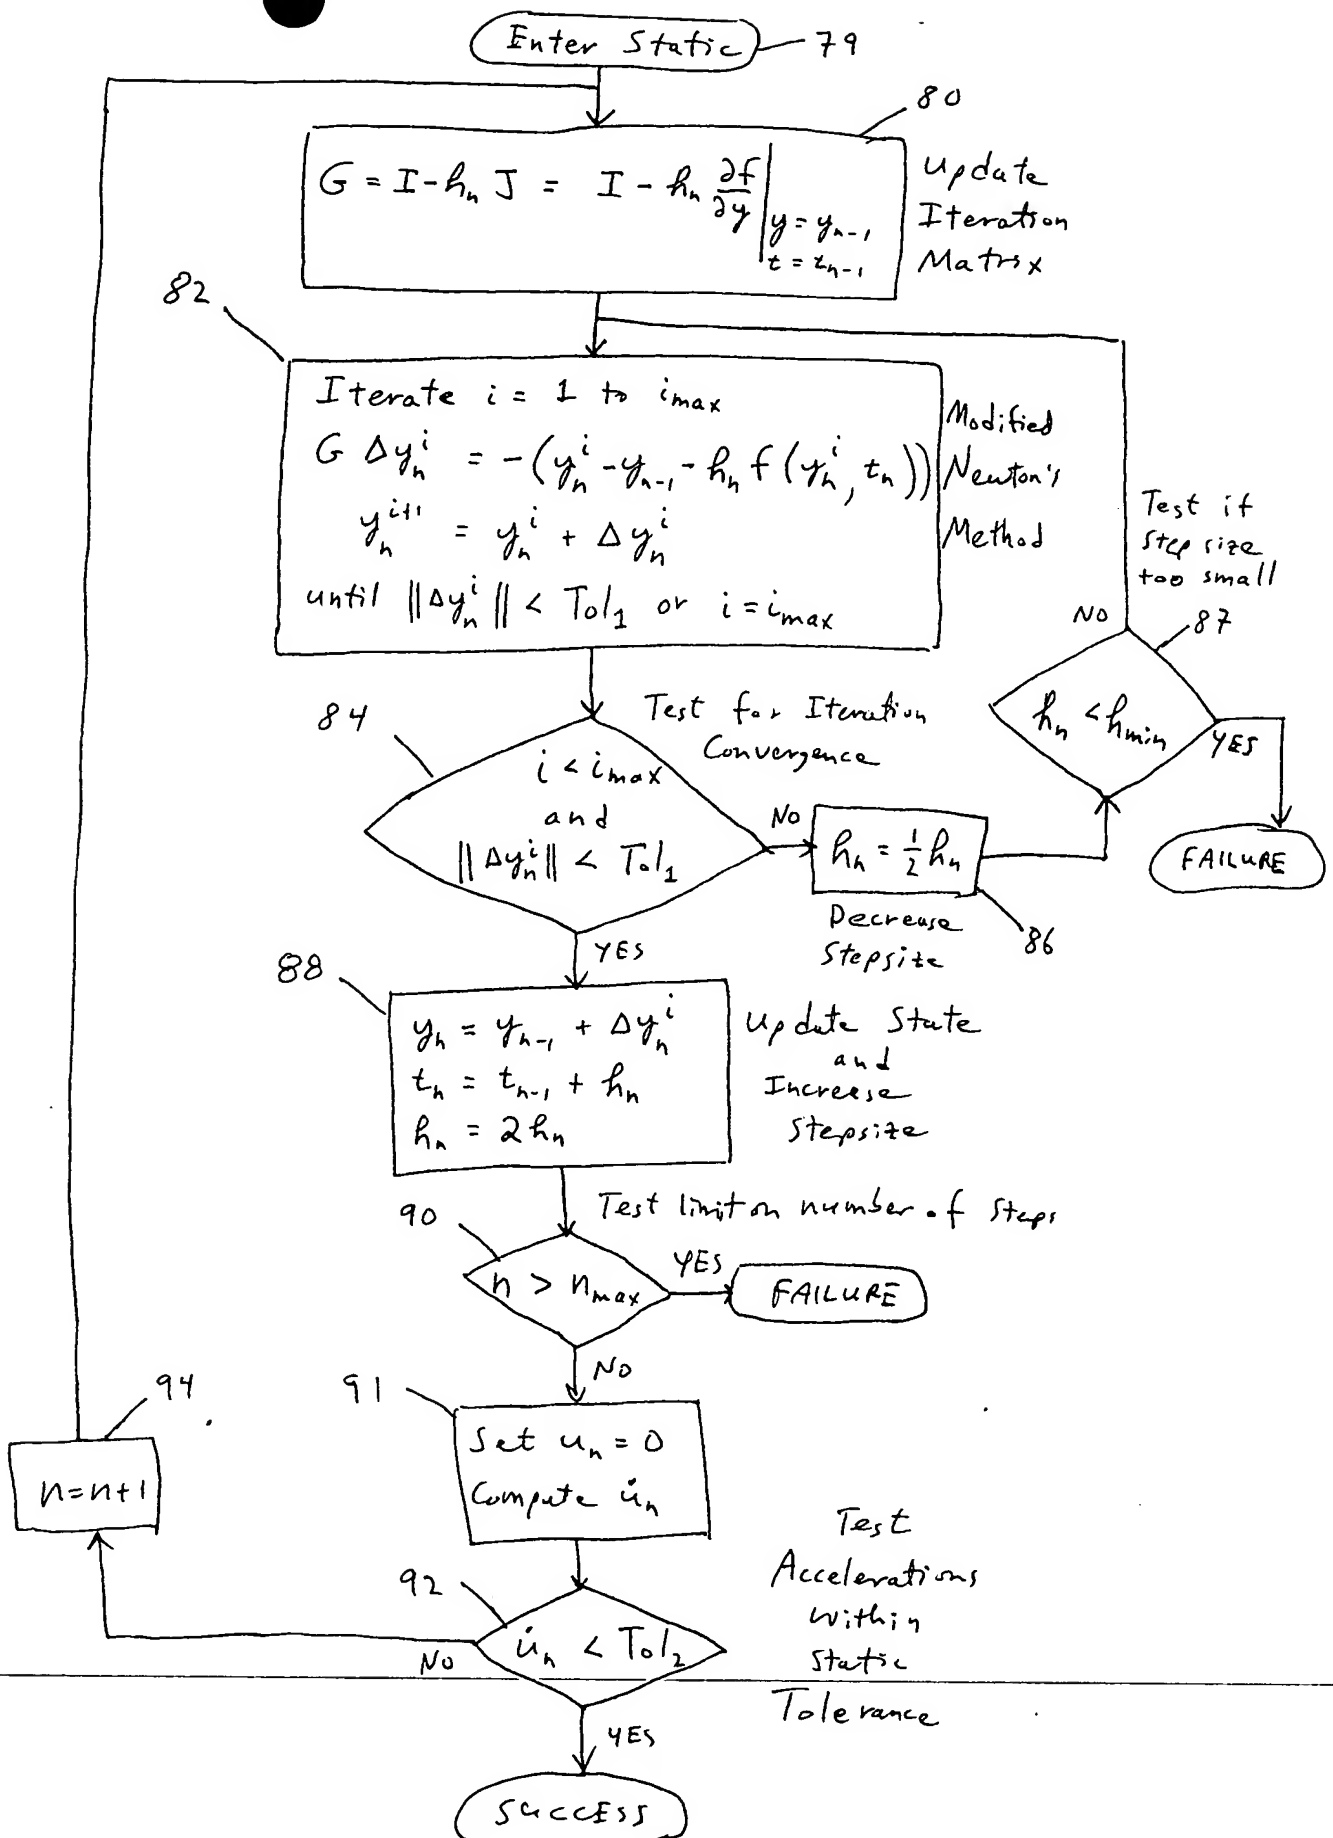 Enter Static
79
80
G = I - hₙ J = I - hₙ ∂f/∂y | y = yₙ₋₁
t = tₙ₋₁
Update
Iteration
Matrix
82
Iterate i = 1 to imax
G Δyₙⁱ = -(yₙⁱ - yₙ₋₁ - hₙ f(yₙⁱ, tₙ))
yₙⁱ⁺¹ = yₙⁱ + Δyₙⁱ
until ||Δyₙⁱ|| < Tol₁ or i = imax
Modified
Newton's
Method
Test if
step size
too small
NO
87
hₙ < hmin
YES
FAILURE
84
Test for Iteration
Convergence
i < imax
and
||Δyₙⁱ|| < Tol₁
NO
hₙ = ½ hₙ
Decrease
Stepsize
86
YES
88
yₙ = yₙ₋₁ + Δyₙⁱ
tₙ = tₙ₋₁ + hₙ
hₙ = 2hₙ
Update State
and
Increase
Stepsize
90
Test limit on number of steps
n > nmax
YES
FAILURE
NO
91
Set uₙ = 0
Compute u̇ₙ
94
n=n+1
92
u̇ₙ < Tol₂
NO
Test
Accelerations
within
static
Tolerance
YES
SUCCESS